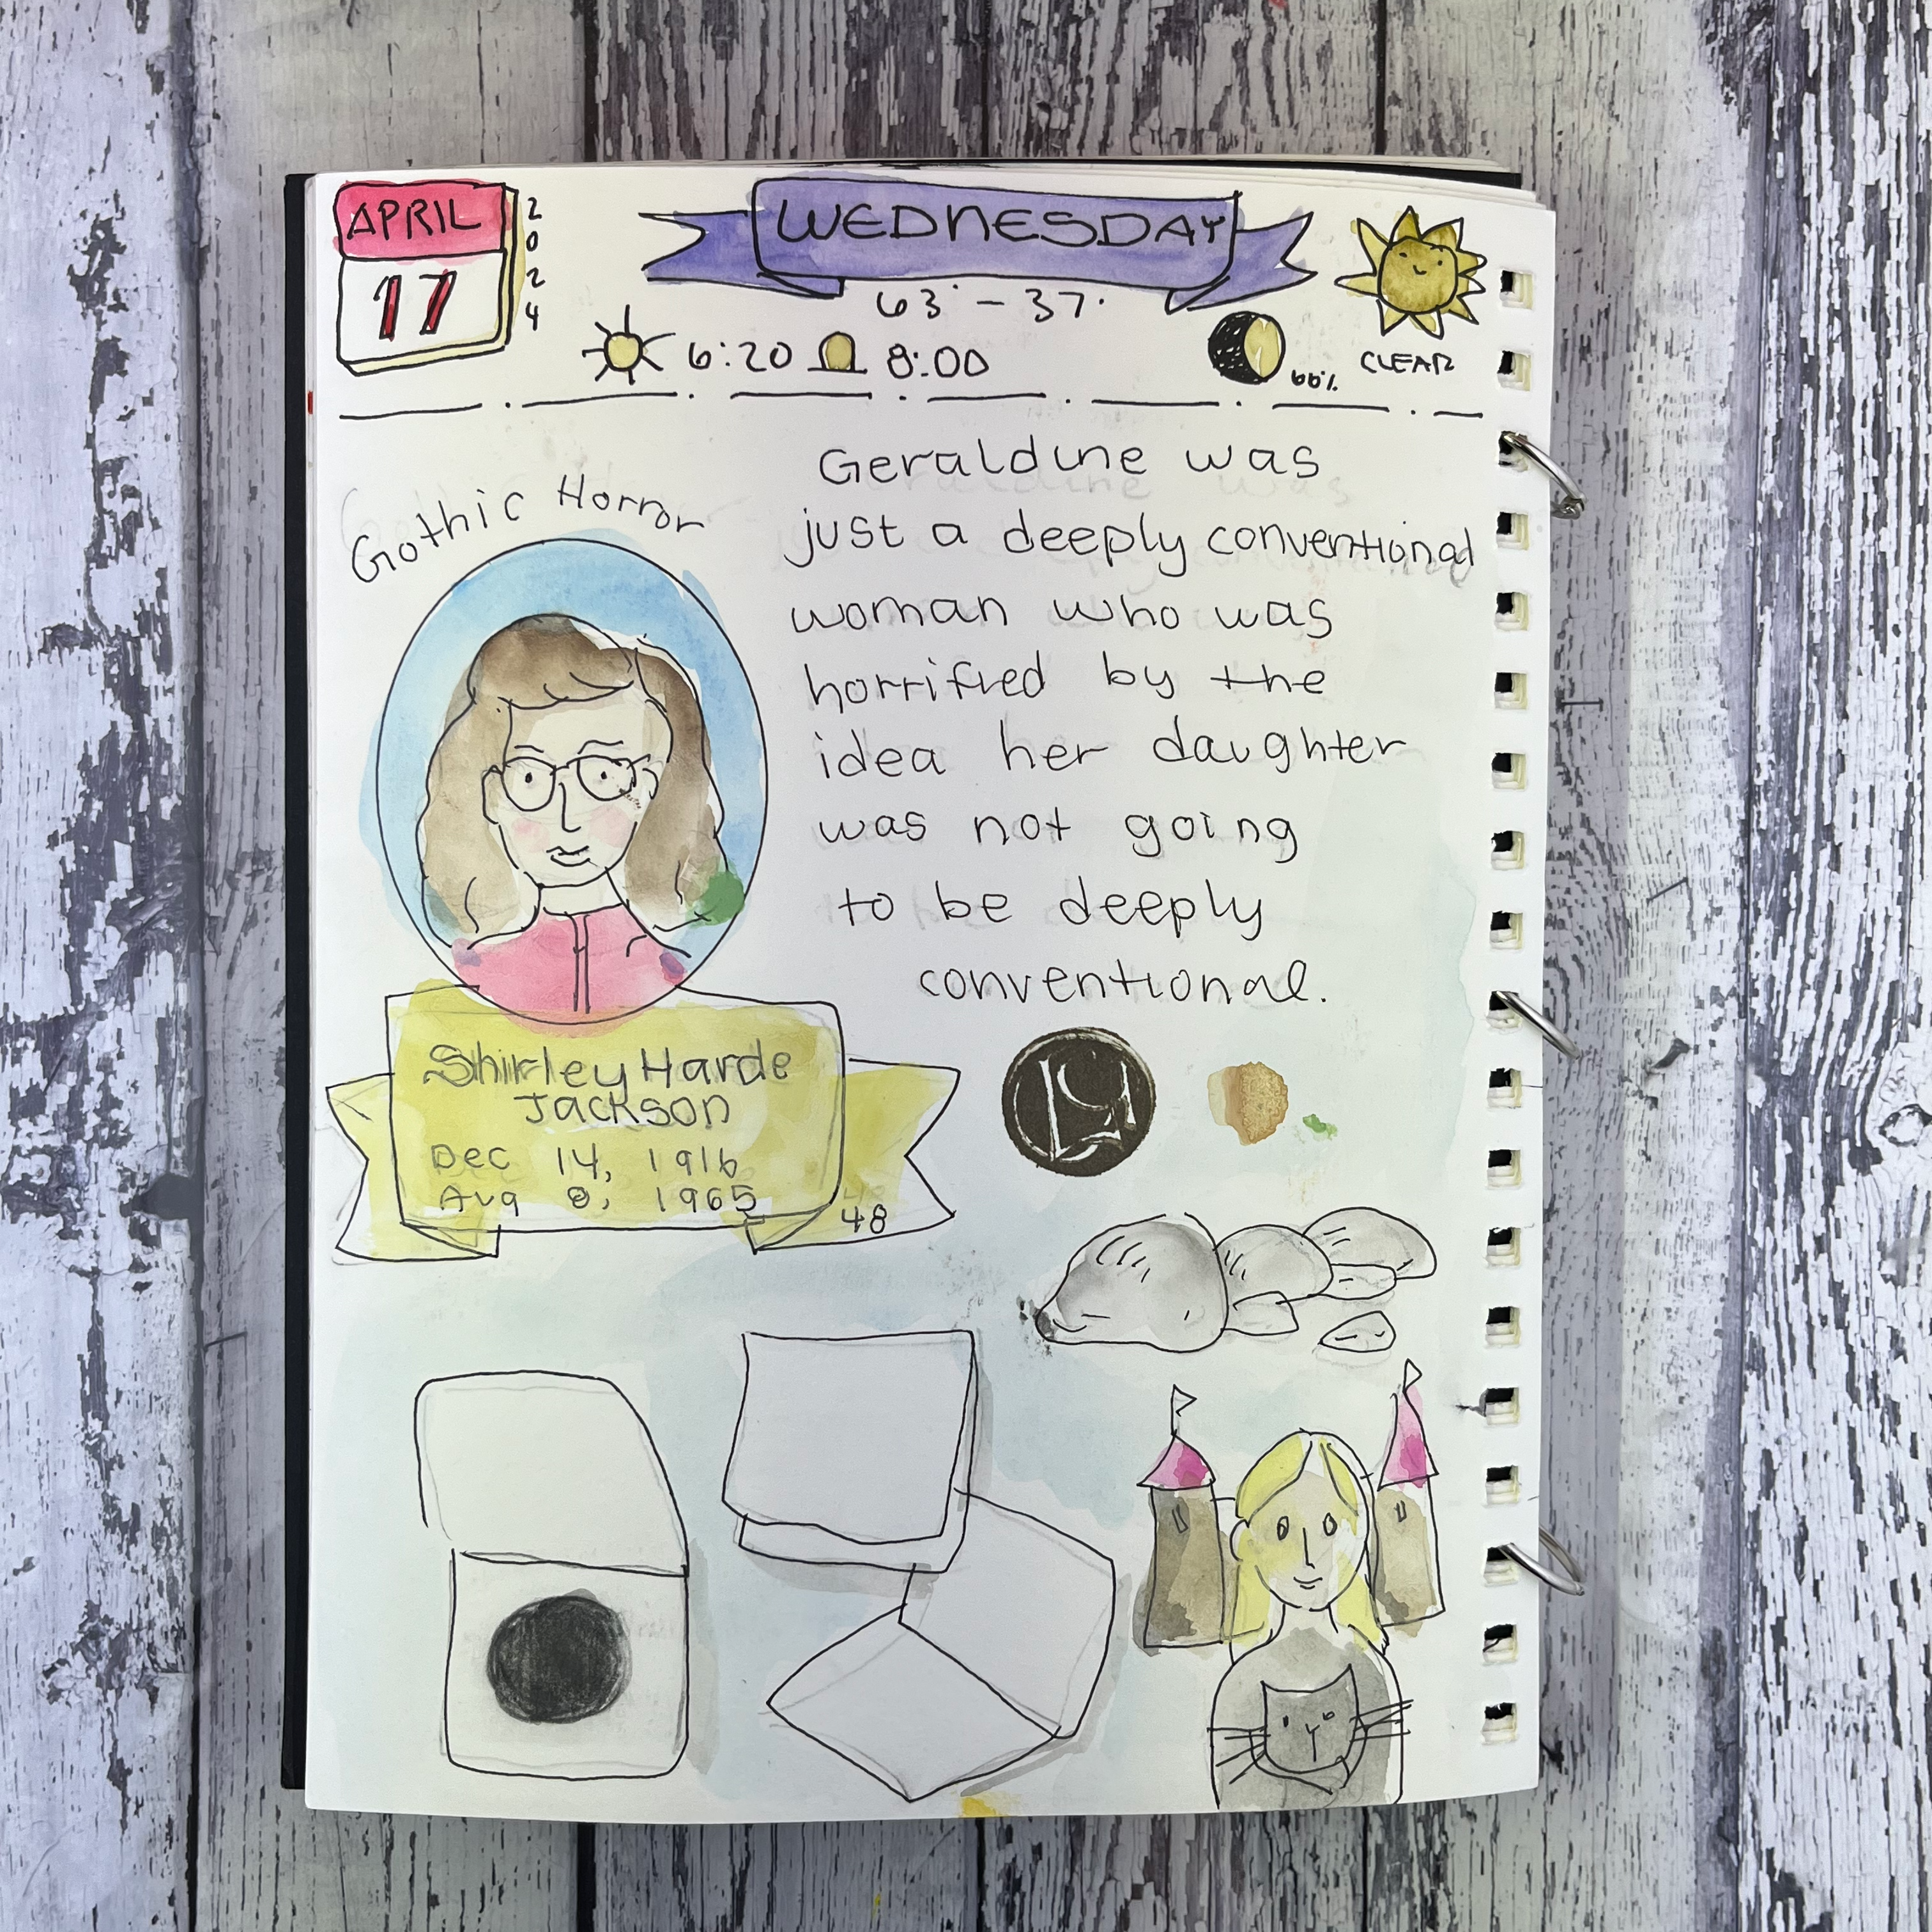 APRIL
17
2024
WEDNESDAY
63° - 37°
6:20 8:00
66%
CLEAR
Gothic Horror
Geraldine was
just a deeply conventional
woman who was
horrified by the
idea her daughter
was not going
to be deeply
conventional.
Shirley Harde
Jackson
Dec 14, 1916
Aug 8, 1965
48